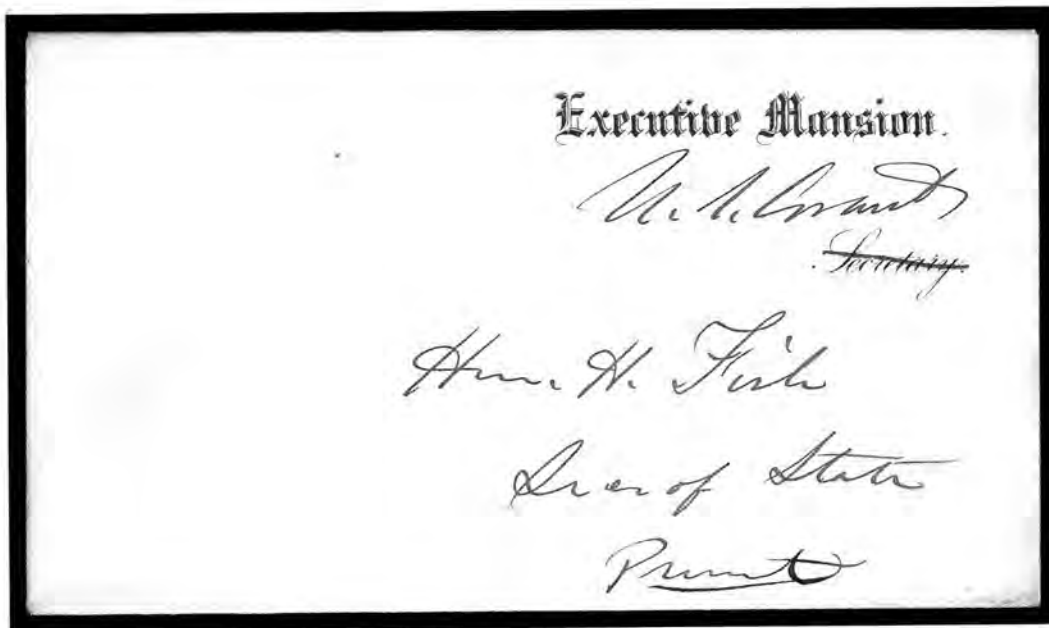 Executive Mansion.
U. S. Grant
Secretary.
Hon. H. Fish
Sec. of State
Present